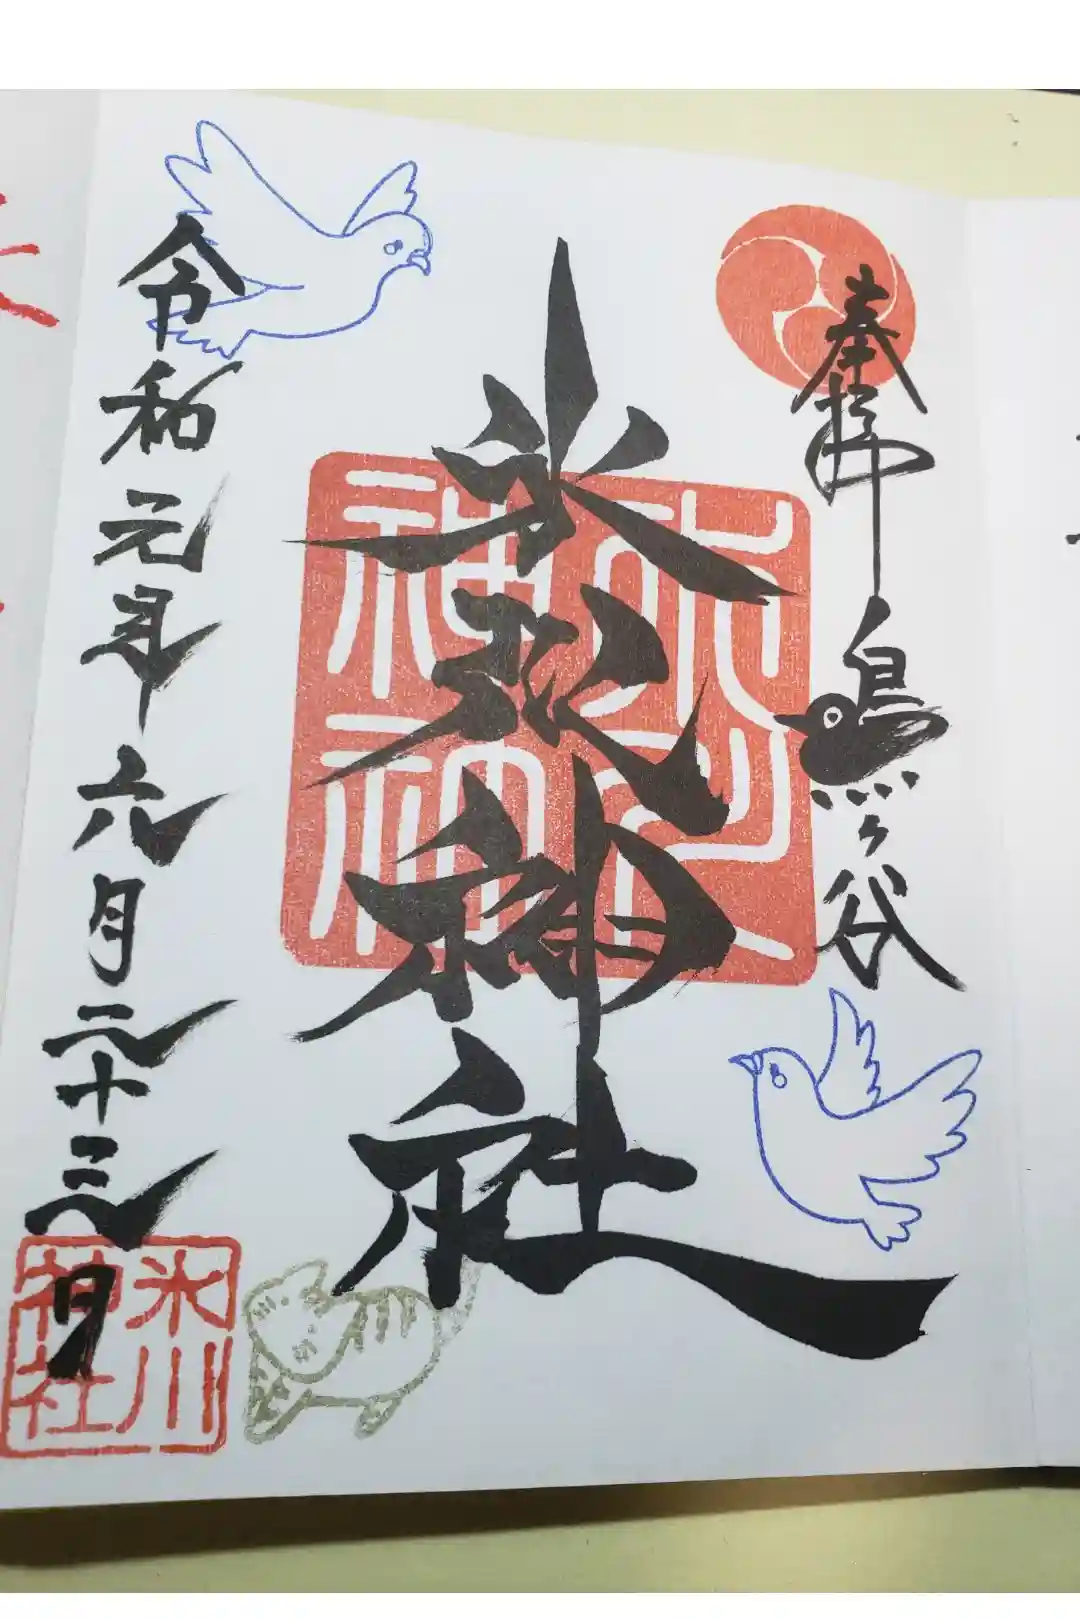 奉拝 鳩ヶ谷
氷川神社
令和元年六月二十三日
氷川
神社